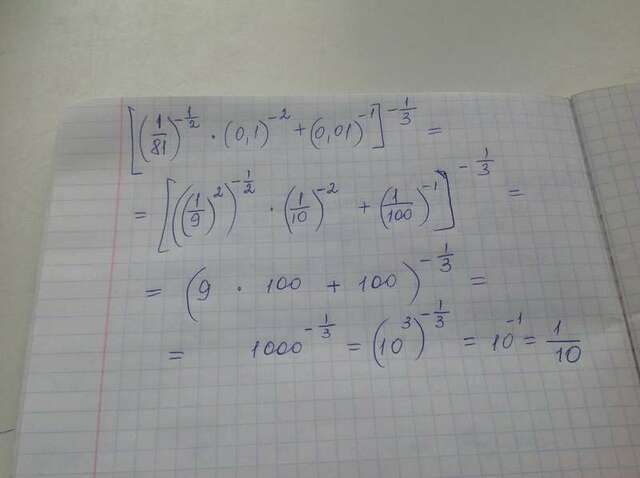 [(1/81)^(-1/2) · (0,1)^(-2) + (0,01)^(-1)]^(-1/3) =
= [((1/9)^2)^(-1/2) · (1/10)^(-2) + (1/100)^(-1)]^(-1/3) =
= (9 · 100 + 100)^(-1/3) =
= 1000^(-1/3) = (10^3)^(-1/3) = 10^(-1) = 1/10